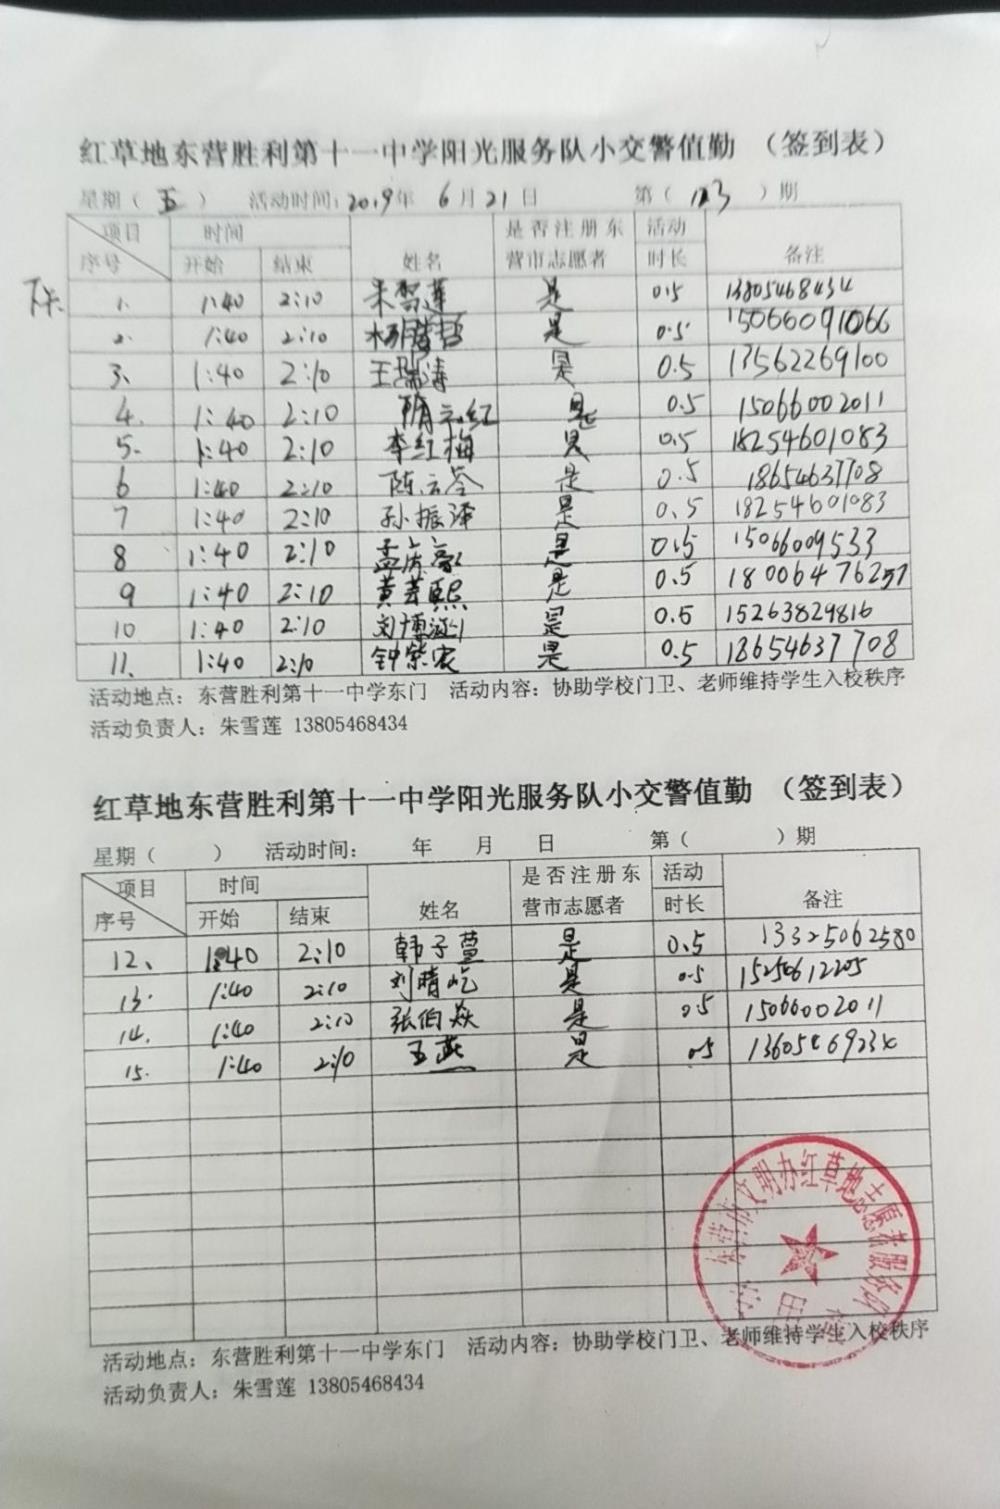 红草地东营胜利第十一中学阳光服务队小交警值勤 （签到表）
星期（ 五 ） 活动时间：2019年 6月21日 第（ ）期
项目 时间 姓名 是否注册东 活动 备注
序号 开始 结束 营市志愿者 时长
1. 1:40 2:10 朱雪莲 是 0.5 13805468434
2. 1:40 2:10 是 0.5 15066091066
3、 1:40 2:10 王瑞涛 是 0.5 13562269100
4. 1:40 2:10 隋云红 是 0.5 15066002011
5. 1:40 2:10 李红梅 是 0.5 18254601083
6 1:40 2:10 陈云苓 是 0.5 18654637708
7 1:40 2:10 孙振泽 是 0.5 18254601083
8 1:40 2:10 是 0.5 15066009533
9 1:40 2:10 黄芸熙 是 0.5 18006476257
10 1:40 2:10 是 0.5 15263829816
11、 1:40 2:10 钟紫宸 是 0.5 18654637708
活动地点：东营胜利第十一中学东门 活动内容：协助学校门卫、老师维持学生入校秩序
活动负责人：朱雪莲 13805468434
红草地东营胜利第十一中学阳光服务队小交警值勤 （签到表）
星期（ ） 活动时间： 年 月 日 第（ ）期
项目 时间 姓名 是否注册东 活动 备注
序号 开始 结束 营市志愿者 时长
12、 1:40 2:10 韩子萱 是 0.5 13325062580
13. 1:40 2:10 刘晴屹 是 0.5
14. 1:40 2:10 张伯焱 是 0.5 15066002011
15. 1:40 2:10 王燕 是 0.5
东营市文明办红草地志愿者服务队
活动地点：东营胜利第十一中学东门 活动内容：协助学校门卫、老师维持学生入校秩序
活动负责人：朱雪莲 13805468434